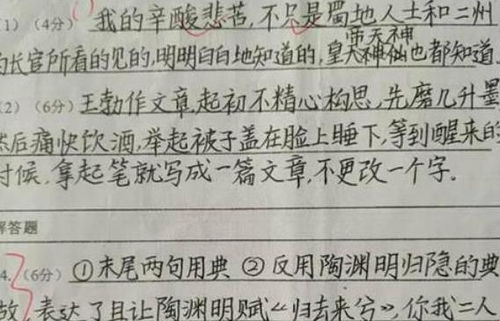 1）（4分）我的辛酸悲苦,不只是蜀地人士和二州
的长官所看的见的,明明白白地知道的,皇天神仙也都知道.
帝天神
2）（6分）王勃作文章,起初不精心构思,先磨几升墨
然后痛快饮酒,举起被子盖在脸上睡下,等到醒来的
时候,拿起笔就写成一篇文章,不更改一个字.
解答题
4.（6分）①末尾两句用典②反用陶渊明归隐的典
故,表达了且让陶渊明赋《归去来兮》,你我二人